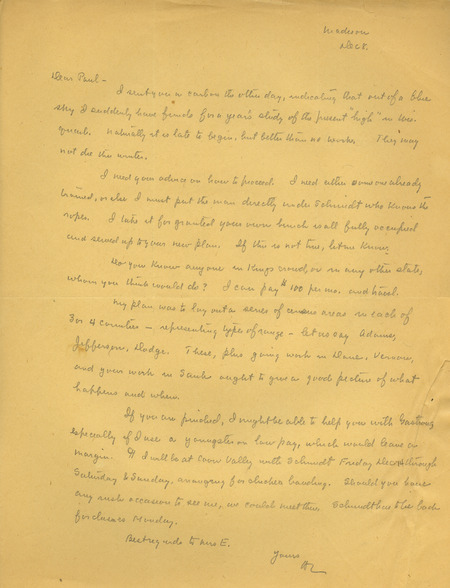 Madison
Dec 8.
Dear Paul -
I sent you a carbon the other day, indicating that out of a blue
sky I suddenly have funds for a year's study of the present "high" in Wis-
Naturally it is late to begin, but better than no work. They may
not die this winter.
I need your advice on how to proceed. I need either someone already
trained, or else I must put the man directly under Schmidt who knows the
ropes. I take it for granted your own bunch is all fully occupied
and served up to your new plan. If this is not true, let me know.
Do you know anyone in Kings crowd, or in any other state,
whom you think would do? I can pay $100 per mo. and travel.
My plan was to lay out a series of census areas in each of
3 or 4 counties - representing types of range - let us say Adams,
Jefferson, Dodge. These, plus going work in Dane, Vernon,
and your work in Sauk ought to give a good picture of what
happens and when.
If you are pinched, I might be able to help you with
especially if I use a youngster on low pay, which would leave a
margin. I will be at Coon Valley with Schmidt Friday Dec through
Saturday & Sunday, arranging for chicken banding. Should you have
any such occasion to see me, we could meet there Schmidt be back
for classes Monday.
Best regards to Mrs E.
Yours
AL